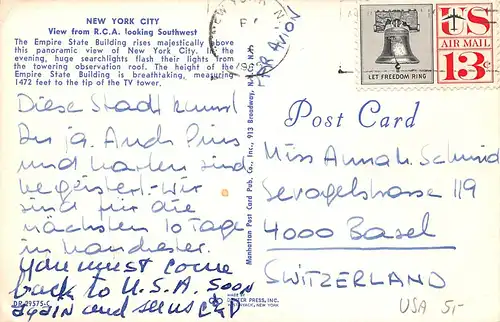 NEW YORK CITY
View from R.C.A. looking Southwest
The Empire State Building rises majestically above
this panoramic view of New York City. In the
evening, huge searchlights flash their lights from
the towering observation roof. The height of the
Empire State Building is breathtaking, measuring
1472 feet to the tip of the TV tower.
Diese Stadt kennst
Du ja. Auch
und
begeistert. Wir
sind für die
nächsten 10 Tage
in Manchester.
You must come
back to U.S.A. soon
again and see us
DR-29575-C
MADE BY
DEXTER PRESS, INC.
WEST NYACK, NEW YORK
Manhattan Post Card Pub. Co., Inc., 913 Broadway, N.Y., N.Y.
PAR AVION
NEW YORK, N.Y.
LET FREEDOM RING
US
AIR MAIL
13c
Post Card
Miss Anna H. Schmid
Sevogelstrasse 119
4000 Basel
SWITZERLAND
USA 5,-